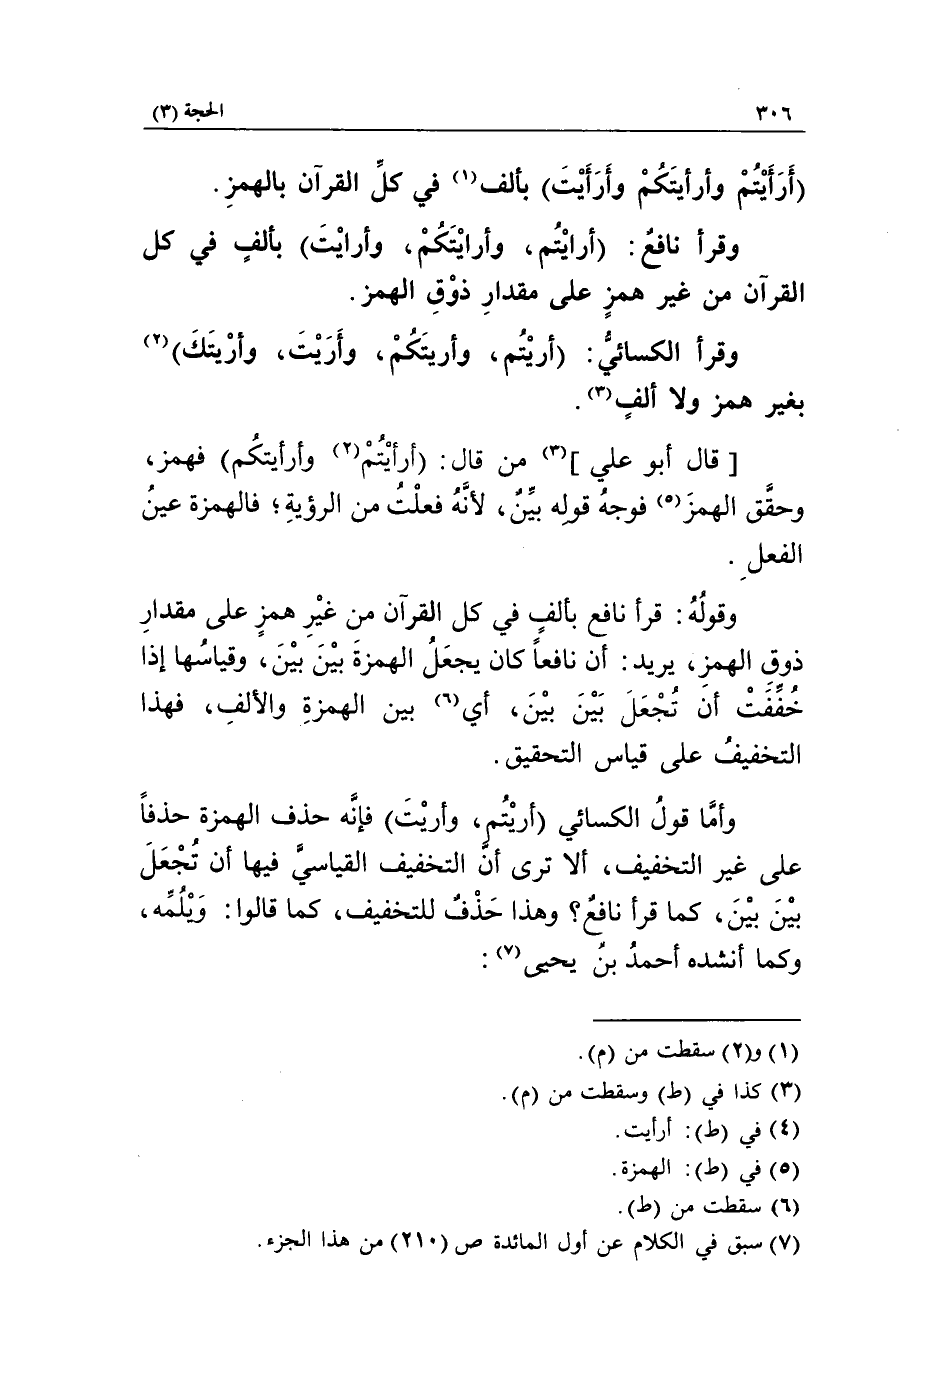 ٣٠٦ الحجة (٣)
(أَرَأَيْتُمْ وأرأيتَكُمْ وأَرَأَيْتَ) بألف(١) في كلِّ القرآن بالهمزِ.
وقرأ نافعٌ: (أرايْتُم، وأرايْتَكُمْ، وأرايْتَ) بألفٍ في كل
القرآن من غير همزٍ على مقدارِ ذوْقِ الهمز.
وقرأ الكسائيُّ: (أريْتُم، وأريتَكُمْ، وأَرَيْتَ، وأرْيتَكَ)(٢)
بغير همز ولا ألفٍ(٣).
[ قال أبو علي ](٣) من قال: (أرأيْتُمْ(٢) وأرأيتكُم) فهمز،
وحقَّق الهمزَ(٥) فوجهُ قولِه بيِّنٌ، لأنَّهُ فعلْتُ من الرؤيةِ؛ فالهمزة عينُ
الفعلِ .
وقولُهُ: قرأ نافع بألفٍ في كل القرآن من غيْرِ همزٍ على مقدارِ
ذوق الهمزِ، يريد: أن نافعاً كان يجعَلُ الهمزةَ بيْنَ بيْنَ، وقياسُها إذا
خُفِّفَتْ أن تُجْعَلَ بَيْنَ بيْنَ، أي(٦) بين الهمزةِ والألفِ، فهذا
التخفيفُ على قياس التحقيق.
وأمَّا قولُ الكسائي (أريْتُم، وأريْتَ) فإنَّه حذف الهمزة حذفاً
على غير التخفيف، ألا ترى أنَّ التخفيف القياسيَّ فيها أن تُجْعَلَ
بيْنَ بيْنَ، كما قرأ نافعٌ؟ وهذا حَذْفٌ للتخفيف، كما قالوا: وَيْلُمِّه،
وكما أنشده أحمدُ بنُ يحيى(٧):
(١) و(٢) سقطت من (م).
(٣) كذا في (ط) وسقطت من (م).
(٤) في (ط): أرأيت.
(٥) في (ط): الهمزة.
(٦) سقطت من (ط).
(٧) سبق في الكلام عن أول المائدة ص (٢١٠) من هذا الجزء.